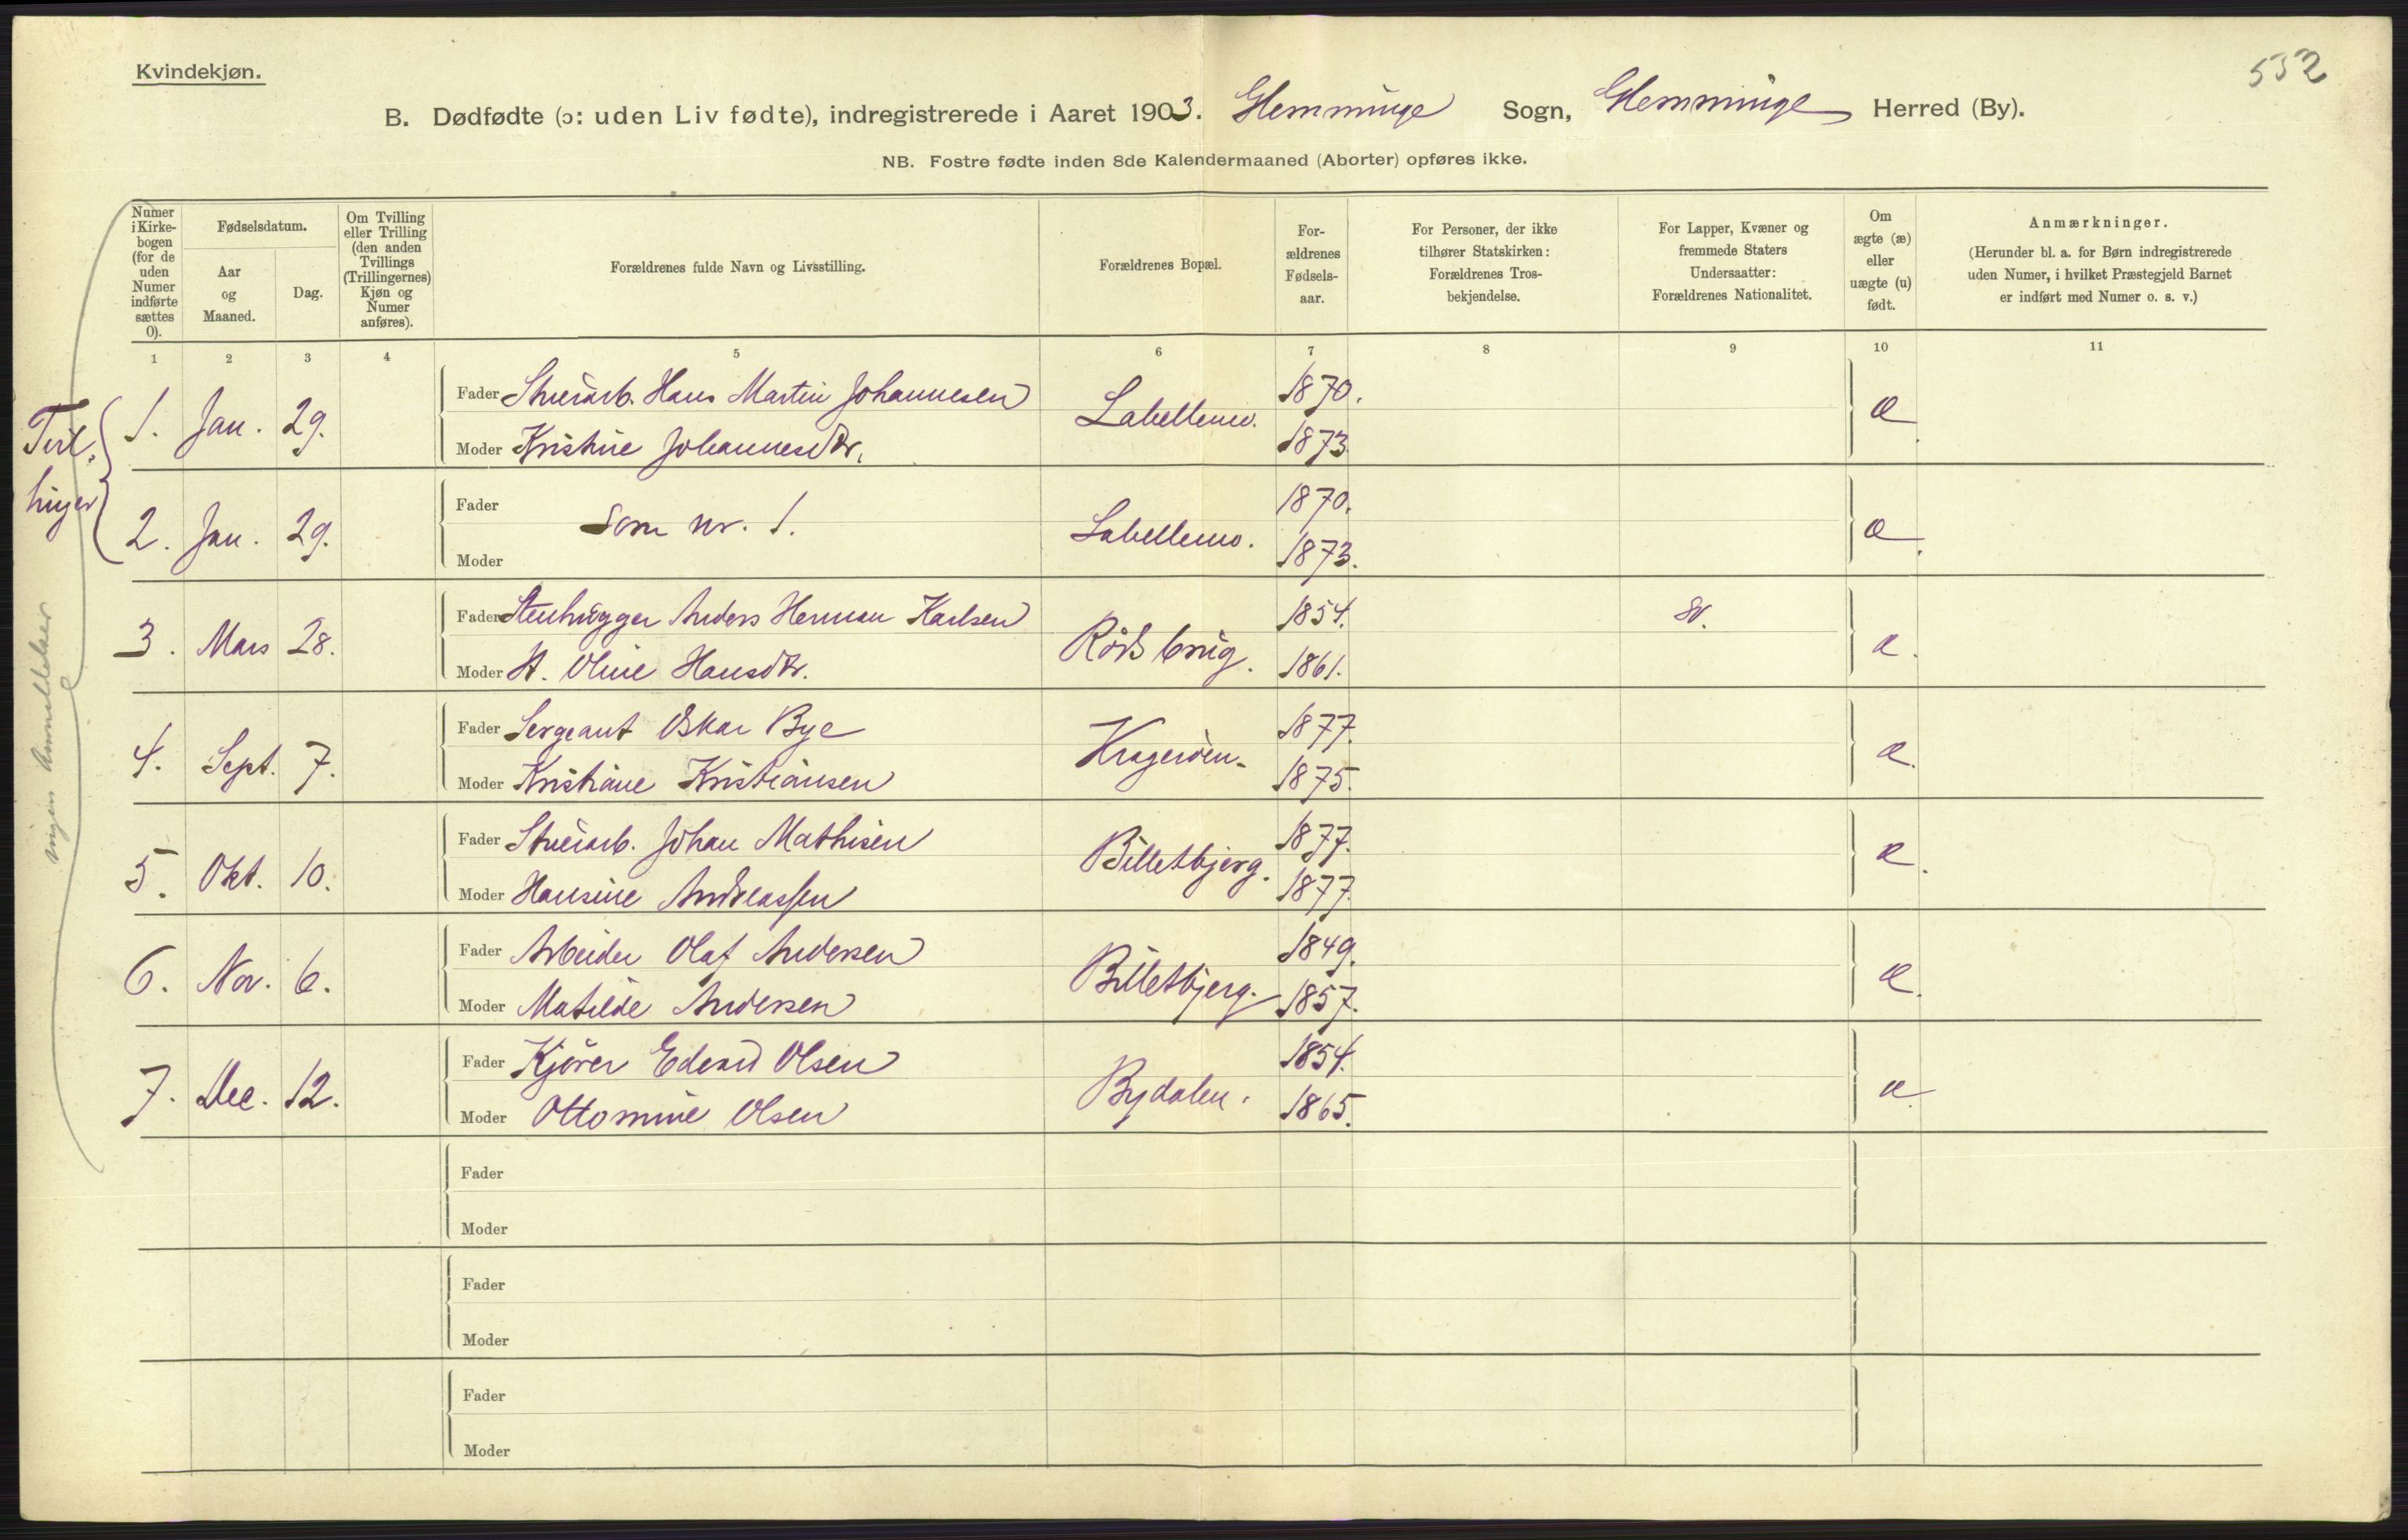 532
Kvindekjøn.
B. Dødfødte (ɔ: uden Liv fødte), indregistrerede i Aaret 1903. Glemminge Sogn, Glemminge Herred (By).
NB. Fostre fødte inden 8de Kalendermaaned (Aborter) opføres ikke.
Numer i Kirkebogen (for de uden Numer indførte sættes 0).
Fødselsdatum.
Aar og Maaned.
Dag.
Om Tvilling eller Trilling (den anden Tvillings (Trillingernes) Kjøn og Numer anføres).
Forældrenes fulde Navn og Livsstilling.
Forældrenes Bopæl.
For-ældrenes Fødsels-aar.
For Personer, der ikke tilhører Statskirken: Forældrenes Tros-bekjendelse.
For Lapper, Kvæner og fremmede Staters Undersaatter: Forældrenes Nationalitet.
Om ægte (æ) eller uægte (u) født.
Anmærkninger.
(Herunder bl. a. for Børn indregistrerede uden Numer, i hvilket Præstegjeld Barnet er indført med Numer o. s. v.)
1 2 3 4 5 6 7 8 9 10 11
Tvil-
linger
ingen Anmeldelser
1. Jan. 29. Fader Struerarb. Hans Martin Johannesen Labellemo. 1870. æ.
Moder Kristine Johannesdtr. 1873.
2. Jan. 29. Fader som nr. 1. Labellemo. 1870. æ.
Moder 1873.
3. Mars 28. Fader Stenhugger Anders Herman Karlsen Röds brug. 1854. Sv. æ.
Moder A. Oline Hansdtr. 1861.
4. Sept. 7. Fader Sergeant Oskar Bye Kragerøen. 1877. æ.
Moder Kristiane Kristiansen 1875.
5. Okt. 10. Fader Johan Mathisen Billetbjerg. 1877. æ.
Moder Hansine Andreassen 1877.
6. Nov. 6. Fader Arbeider Olaf Andersen Billetbjerg. 1849. æ.
Moder Matilde Andersen 1857.
7. Dec. 12. Fader Kjører Edvard Olsen Bydalen. 1854. æ.
Moder Ottomine Olsen 1865.
Fader
Moder
Fader
Moder
Fader
Moder